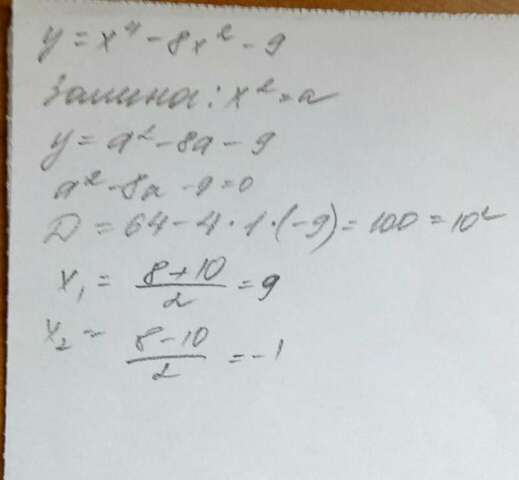 y = x⁴ - 8x² - 9
Замина: x² = a
y = a² - 8a - 9
a² - 8a - 9 = 0
D = 64 - 4 · 1 · (-9) = 100 = 10²
x₁ = (8+10)/2 = 9
x₂ = (8-10)/2 = -1